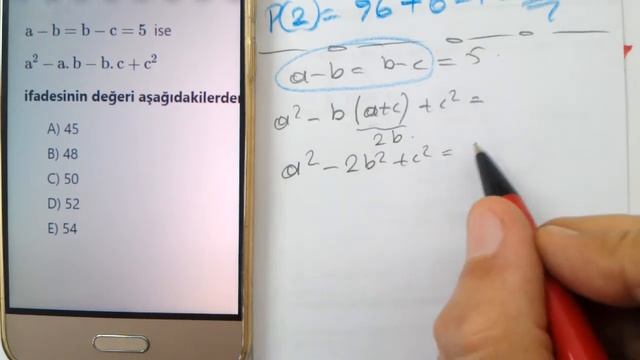 a − b = b − c = 5 ise
a² − a.b − b.c + c²
ifadesinin değeri aşağıdakilerden
A) 45
B) 48
C) 50
D) 52
E) 54
P(2) = 96 +
a−b = b−c = 5.
a² − b (a+c) + c² =
2b.
a² − 2b² + c² =